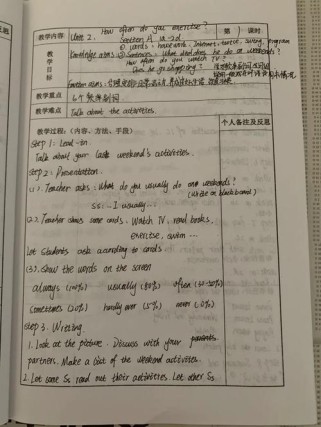 教学内容 Unit 2. How often do you exercise? 第 课时
Section A 1a-2d.
教学目标 Knowledge aims: ① words: housework, Internet, swing, program
② Sentences: What do/does he do on weekends?
How often do you watch TV?
Does he go shopping?
Emotion aims:
教学重点 6个频率副词
教学难点 Talk about the activities.
教学过程:(内容、方法、手段) 个人备注及反思
Step 1: Lead-in
Talk about your last weekend's activities.
Step 2: Presentation.
(1). Teacher asks: What do you usually do on weekends?
(Write on blackboard)
Ss: .. I usually...
(2). Teacher shows some cards. Watch TV, read books,
exercise, swim ...
Let students ask according to cards
(3). Show the words on the screen
always (100%) usually (80%) often (30-50%)
Sometimes (20%) hardly ever (5%) never (0%)
Step 3. Writing.
1. Look at the picture. Discuss with your parents
partners. Make a list of the weekend activities.
2. Let some Ss read out their activities. Let other Ss